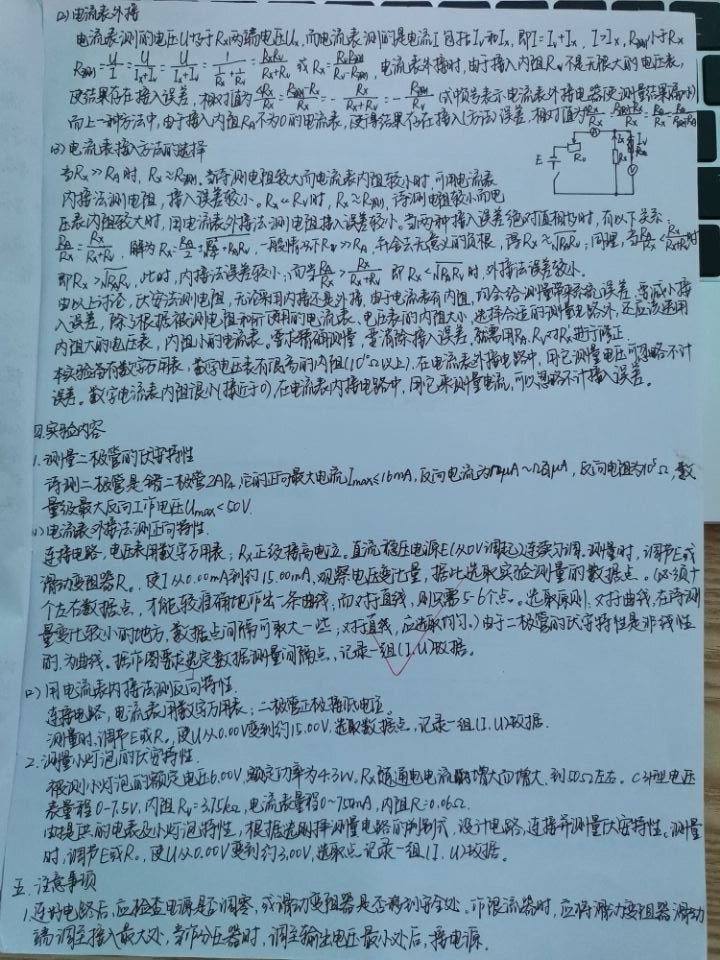 (2) 电流表外接
电流表测的电压U等于Rx两端电压Ux,而电流表测的是电流I包括Iv和Ix,即I=Iv+Ix, I>Ix, R测小于Rx
R测=U/I=U/(Ix+Iv)=1/(1/Rx+1/Rv)=RxRv/(Rx+Rv) 或 Rx=RvR测/(Rv-R测),电流表外接时,由于接入内阻Rv不是无限大的电压表,
使结果存在接入误差,相对值为ΔRx/Rx=(R测-Rx)/Rx=-Rx/(Rx+Rv)=-R测/Rv (式中负号表示电流表外接电路使测量结果偏小)
而上一种方法中,由于接入内阻RA不为0的电流表,使得结果存在接入(方法)误差,相对值为
(3) 电流表接入方法的选择
当Rx>>RA时,Rx≈R测,当待测电阻较大而电流表内阻较小时,可用电流表
内接法测电阻,接入误差较小。Rx<<Rv时,Rx≈R测,待测电阻较小而电
压表内阻较大时,用电流表外接法测电阻接入误差较小。当两种接入误差绝对值相等时,有以下关系:
RA/Rx=Rx/(Rx+Rv),解为 一般情况下Rv>>RA,并舍去无意义的负根,得Rx≈√(RARv);同理,当RA/Rx<Rx/(Rx+Rv)时
即Rx>√(RARv),此时,内接法误差较小;而当RA/Rx>Rx/(Rx+Rv) 即Rx<√(RARv)时,外接法误差较小。
由以上讨论,伏安法测电阻,无论采用内接还是外接,由于电流表有内阻,均会给测量带来系统误差,要减小接
入误差,除了根据被测电阻和所使用的电流表、电压表的内阻大小,选择合适的测量电路外,还应该选用
内阻大的电压表,内阻小的电流表,要求精确测量,要消除接入误差,就需用RA、Rv对Rx进行修正.
本实验备有数字万用表,数字电压表有很高的内阻(以上),在电流表外接电路中,用它测量电压可忽略不计
误差。数字电流表内阻很小(接近于0),在电流表内接电路中,用它来测量电流,可以忽略不计接入误差。
四.实验内容
1.测量二极管的伏安特性
待测二极管是锗二极管2AP4,它的正向最大电流Imax≤16mA,反向电流为,反向电阻为10⁵Ω,数
量级最大反向工作电压Umax<50V.
(1) 电流表外接法测正向特性.
连接电路,电压表用数字万用表;Rx正级接高电位。直流稳压电源E(从0V调起)连续可调.测量时,调节E或
滑动变阻器R。,使I从0.00mA到约15.00mA,观察电压变化量,据此选取实验测量的数据点。(必须十
个左右数据点,才能较准确地作出一条曲线;而对于直线,则只需5-6个点。选取原则,对于曲线,在待测
量变化较小的地方,数据点间隔可取大一些;对于直线,应选取均匀.)由于二极管的伏安特性是非线性
的,为曲线。据作图要求选定数据测量间隔点,记录一组(I,U)数据。
(2) 用电流表内接法测反向特性.
连接电路,电流表用数字万用表;二极管正极接低电位。
测量时,调节E或R。,使U从0.00V变到约15.00V,选取数据点,记录一组(I,U)数据.
2.测量小灯泡的伏安特性.
被测小灯泡的额定电压6.00V,额定功率为4.3W,Rx随通电电流的增大而增大,到50Ω左右。C31型电压
表量程0-7.5V,内阻Rv=3.75kΩ,电流表量程0~750mA,内阻R=0.06Ω.
由提供的电表及小灯泡特性,根据选择测量电路的判别式,设计电路,连接并测量伏安特性。测量
时,调节E或R。,使U从0.00V变到约3.00V,选取点,记录一组(I,U)数据。
五.注意事项
1.连好电路后,应检查电源是否调零,或滑动变阻器是否移到安全处。作限流器时,应将滑动变阻器滑动
端调至接入最大处,当作分压器时,调至输出电压最小处后,接电源.
E
R₀
Rx
Ix
Iv